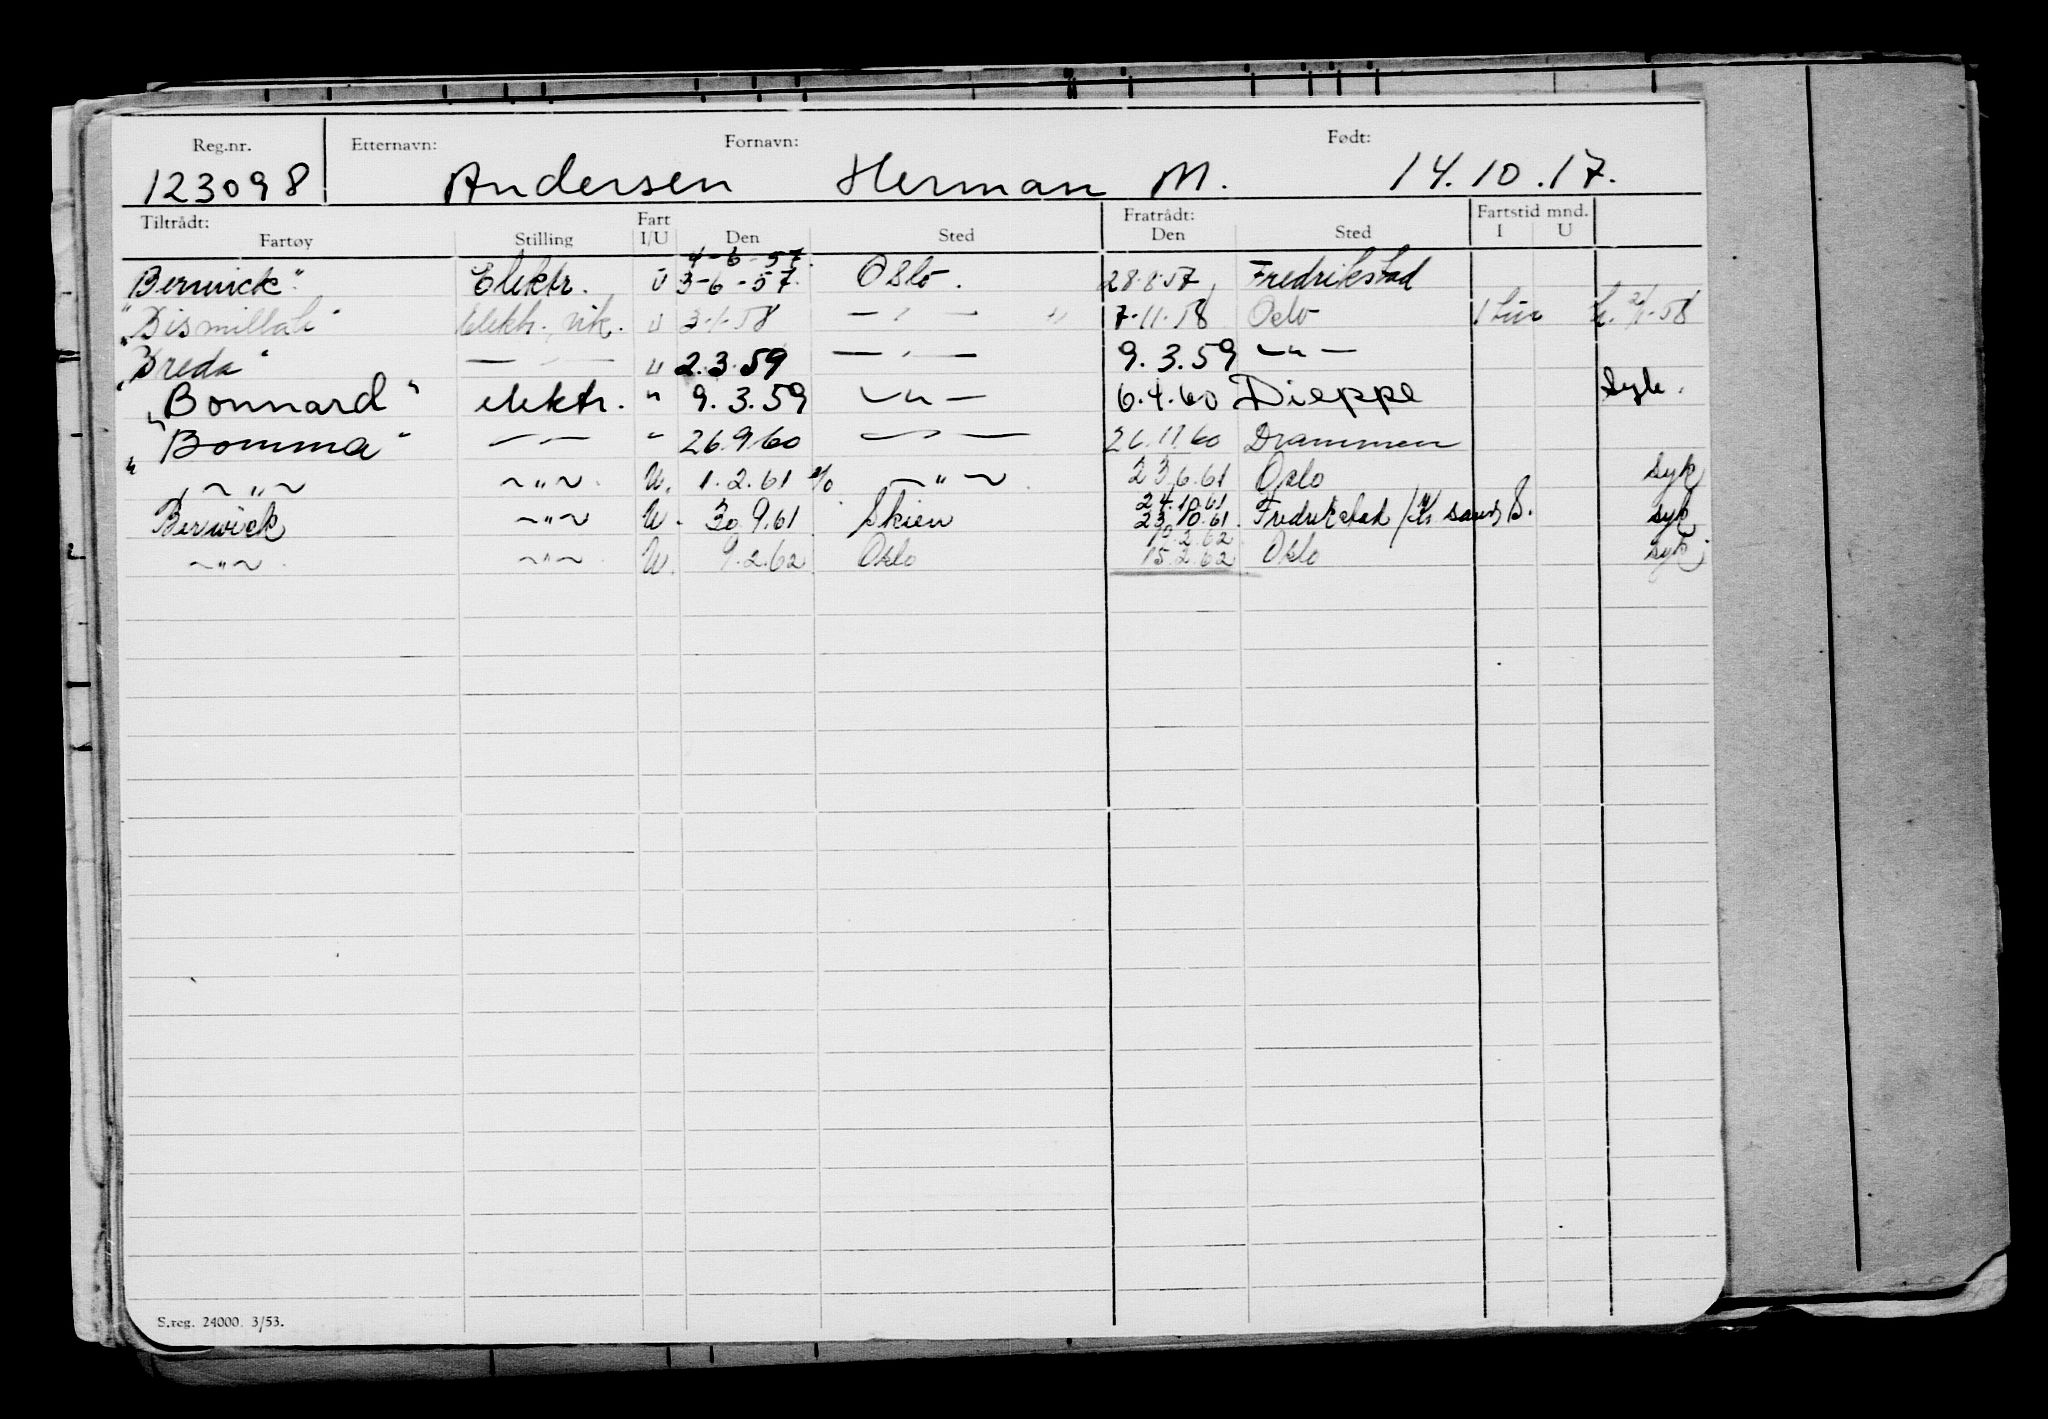 Reg.nr. Etternavn: Fornavn: Født:
123098 Andersen Herman M. 14.10.17.
Tiltrådt: Fart Fratrådt: Fartstid mnd.
Fartøy Stilling I/U Den Sted Den Sted I U
4-6-57.
Berwick" Elektr. U 3-6-57. Oslo. 28.8.57, Fredrikstad
"Bismillah" elektr. vik. u 3-1-58 — " — 7.11.58 Oslo 1 tur 58
"Breda" — " — u 2.3.59 — " — 9.3.59 — " —
"Bonnard" elektr. " 9.3.59 — " — 6.4.60 Dieppe Syk.
"Bomma" — " — " 26.9.60 — " — 26.11.60 Drammen
" ~ " ~ ~ " ~ U. 1.2.61 ~ " ~ 23.6.61 Oslo Syk
24.10.61
Berwick ~ " ~ U. 30.9.61 Skien 23.10.61. Fredrikstad / Kr sand S. syk
19.2.62
~ " ~ ~ " ~ U. 9.2.62 Oslo 15.2.62 Oslo syk
S.reg. 24000. 3/53.